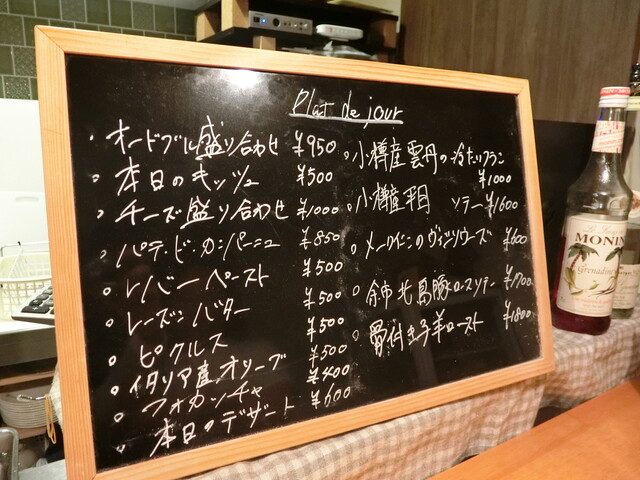 Plat de jour
オードブル盛り合わせ ¥950
本日のキッシュ ¥500
チーズ盛り合わせ ¥1000
パテ・ド・カンパーニュ ¥850
レバーペースト ¥500
レーズンバター ¥500
ピクルス ¥500
イタリア産オリーブ ¥500
フォカッチャ ¥400
本日のデザート ¥600
小樽産雲丹の冷たいフラン ¥1000
小樽産平目 ソテー ¥1600
メークインのヴィシソワーズ ¥600
余市北島豚ロースソテー ¥1700
骨付き子羊ロースト ¥1800
MONIN
Grenadine